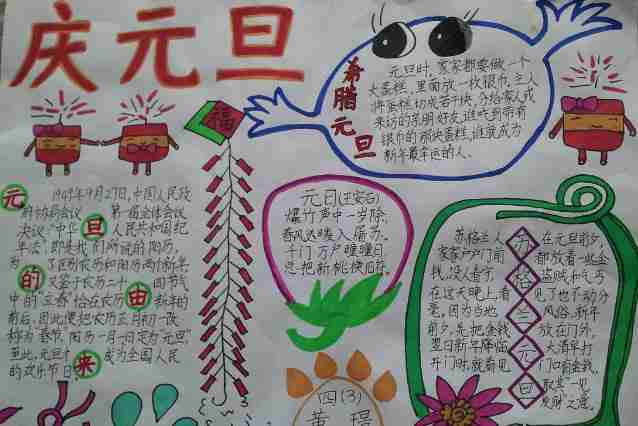 庆元旦
福
希腊元旦
元旦时,家家都要做一个
大蛋糕,里面放一枚银币,主人
将蛋糕切成若干快,分给家人或
来访的亲朋好友,谁吃到带有
银币的那块蛋糕,谁就成为
新年最幸运的人。
元旦的由来
1949年9月27日,中国人民政
第一届全体会议
决议"中华 人民共和国纪
年法"即 我们所说的阳历,
为了区别农历和阳历两个新年,
又鉴于农历二十四节气
中的"立春"恰在农历 新年的
前后,因此便把农历正月初一改
称为"春节",阳历一月一日定为"元旦",
至此,元旦 成为全国人民
的欢乐节日。
元日(王安石)
爆竹声中一岁除,
春风送暖入屠苏。
千门万户曈曈日,
总把新桃换旧符。
苏格兰元旦
苏格兰人
家家户户门前
钱,没人看守,
在这天晚上,看
毫,因为当地
前夕,先把金钱
翌日新年降临
开门时就看见
在元旦前夕,
都放着一些金
盗贼和乞丐
见了也不动分
风俗,新年
放在门外,
大清早打
门口有金钱,
取"一见
发财"之意。
四(3)
黄